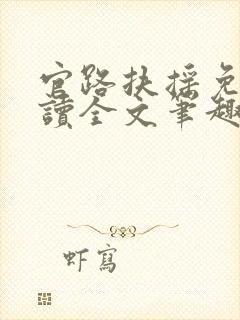 官路扶摇免
讀全文筆趣
虾寫